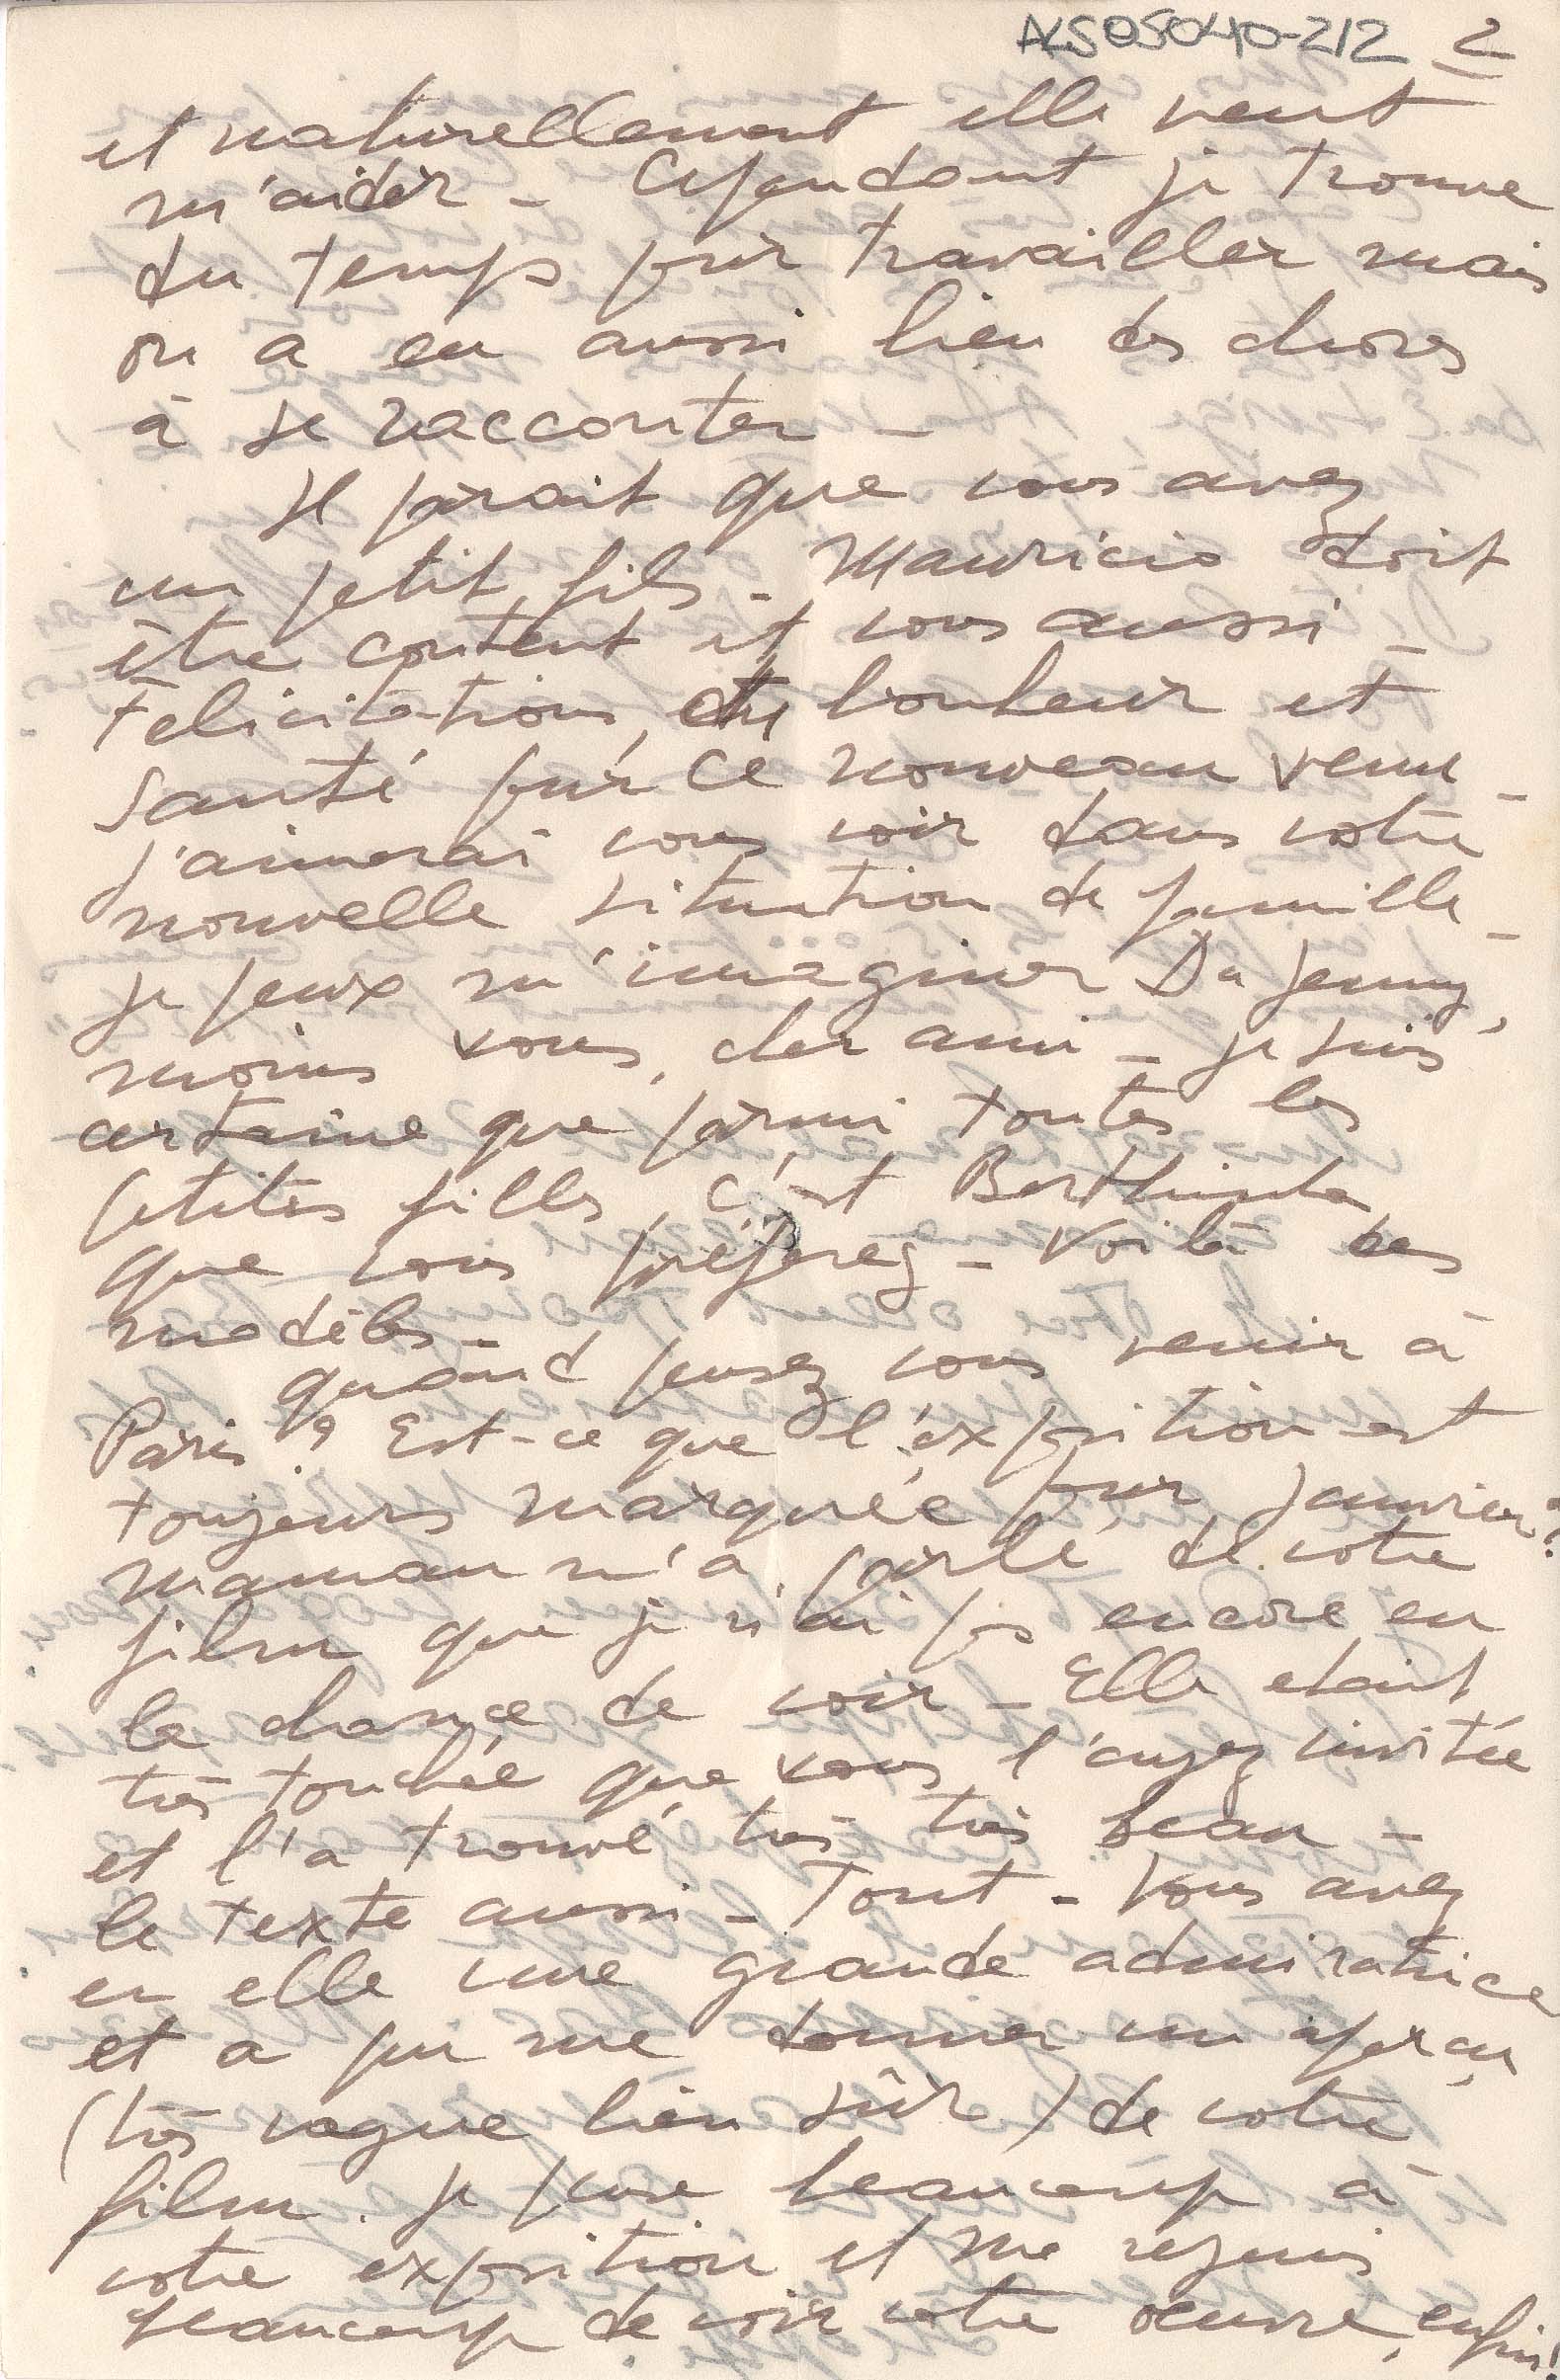 ALS05040-212 2
et naturellement elle veut
m'aider - Cependant je trouve
du temps pour travailler mais
on a eu aussi bien des choses
à se racconter -
Il parait que vous avez
un petit fils - Mauricio doit
être content et vous aussi -
Félicitations, bonheur et
santé pour ce nouveau venu -
J'aimerai vous voir dans votre
nouvelle situation de famille -
je peux m'imaginer Da Jenny,
moins vous, cher ami - je suis
certaine que parmi toutes les
petites filles, c'est
que vous préferez - Voilà les
modèles -
quand pensez vous venir à
Paris? Est-ce que l'exposition est
toujours marquée pour Janvier?
maman m'a parlé de votre
film que je n'ai pas encore eu
la chance de voir - Elle etait
très touchée que vous l'ayez invitée
et l'a trouvé très très beau -
le texte aussi - Tout - Vous avez
en elle une grande admiratrice
et a pu me donner un aperçu
(très vague bien sûr) de votre
film. je pense beaucoup à
votre exposition et me rejouis
beaucoup de voir votre oeuvre, enfin!